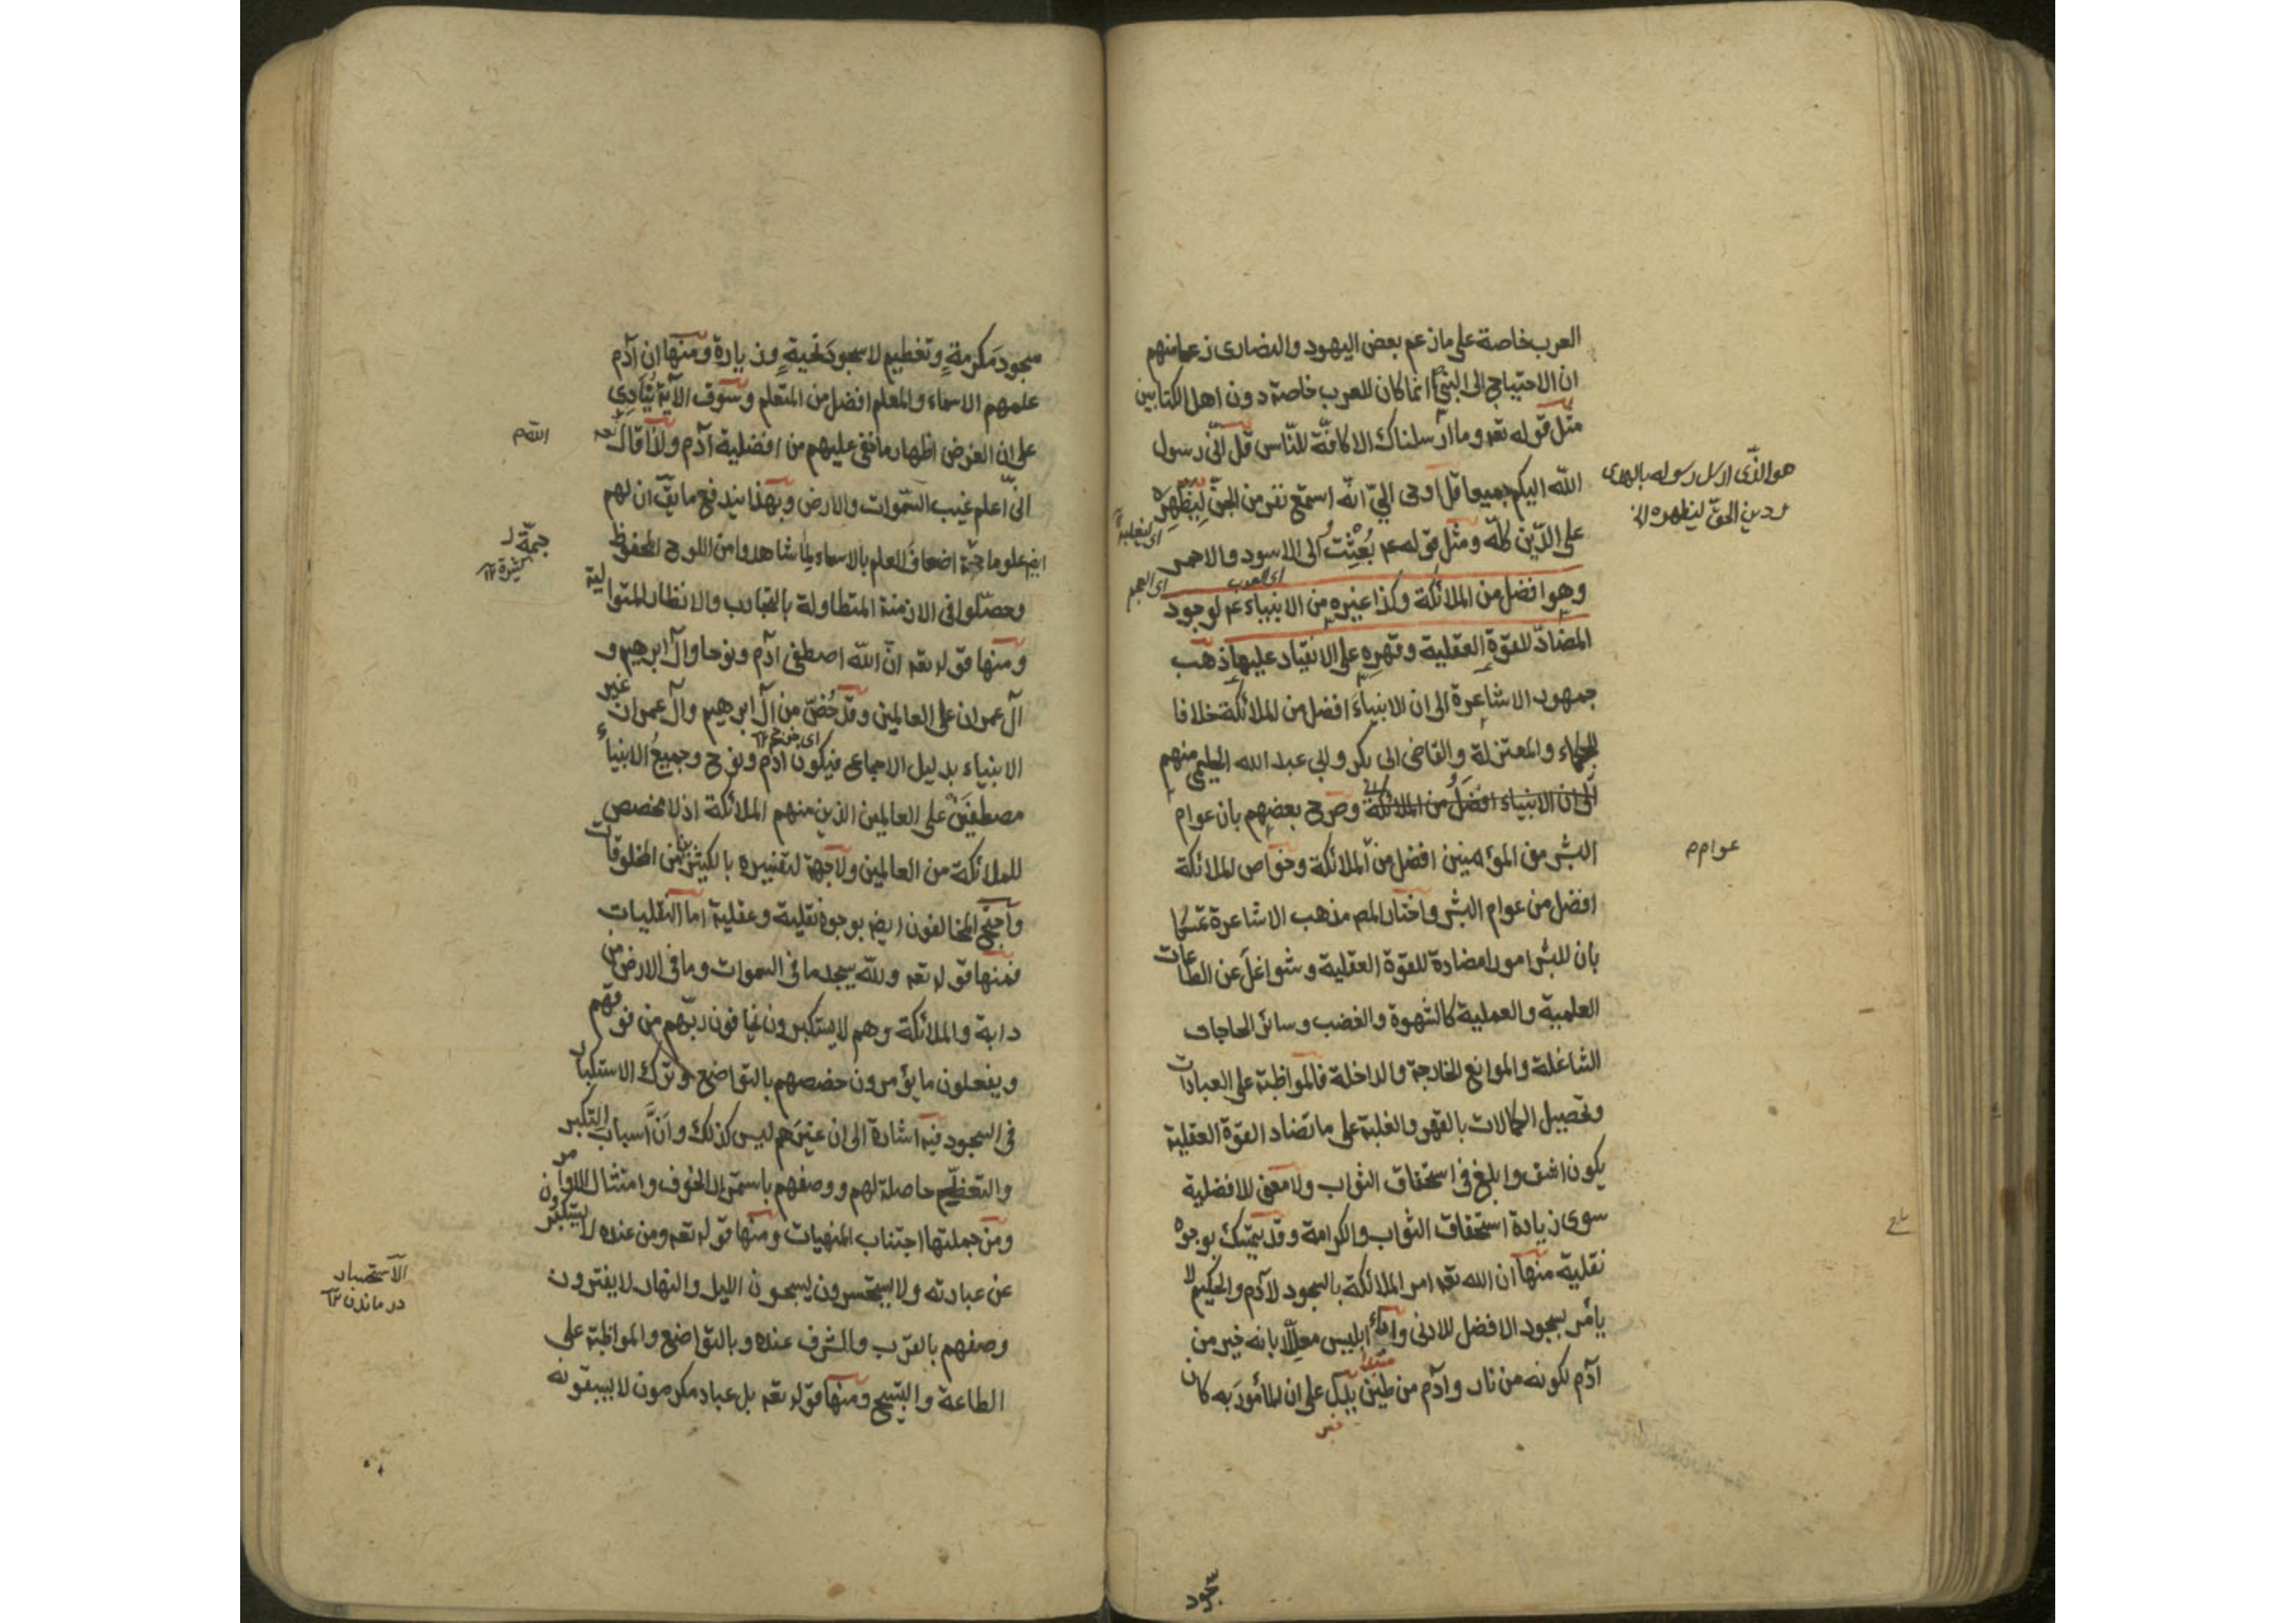 العرب خاصة على ما زعم بعض اليهود والنصارى زعما منهم
ان الاحتياج الى النبي انما كان للعرب خاصة دون اهل الكتابين
مثل قوله تعه وما ارسلناك الا كافّة للنّاس قل انّي رسول
الله اليكم جميعا قل اوحى اليّ انّه استمع نفر من الجنّ ليظهره
هو الذّى ارسل رسوله بالهدى
ودين الحقّ ليظهره الخ
على الدّين كلّه ومثل قوله عم بُعِثْتُ الى الاسود والاحمر
اى العرب
اى العجم
وهو افضل من الملائكة وكذا غيره من الانبياء عم لوجود
المضادّ للقوّة العقلية وقهره على الانقياد عليها ذهب
جمهور الاشاعرة الى ان الانبياءَ افضل من الملائكة خلافا
للحكماء والمعتزلة والقاضى ابى بكر وابى عبد الله الحليمى منهم
الى ان الانبياء افضلُ من الملائكة وصرح بعضهم بان عوام
البشر من المؤمنين افضل من الملائكة وخواص الملائكة
عوام م
افضل من عوام البشر واختار المص مذهب الاشاعرة تمسّكا
بان للبشر امورا مضادة للقوّة العقلية وشواغلَ عن الطاعات
العلمية والعملية كالشهوة والغضب وسائر الحاجات
الشاغلة والموانع الخارجة والداخلة فالمواظبة على العبادات
وتحصيل الكمالات بالقهر والغلبة على ما تضاد القوّة العقلية
يكون اشق وابلغ فى استحقاق الثواب ولا معنى للافضلية
سوى زيادة استحقاق الثواب والكرامة وقد يتمسّك بوجوه
نقلية منها ان الله تعه امر الملائكة بالسجود لآدم والحكيم لا
يأمر بسجود الافضل للادنى واباء ابليس معلّلا بانه خير من
آدم لكونه من نار وآدم من طين يدلّ على ان المأمورَ به كان
سجود
سجودَ مكرمةٍ وتعظيم لا سجودَ تحيةٍ وزيارة ومنها ان آدم
علمهم الاسماء والمعلم افضل من المتعلم وسوق الآية يُنَادِى
على ان الغرض اظهار ما خفى عليهم من افضلية آدم ولذا قال تعه
انّى اعلم غيب السّموات والارض وبهذا يندفع ما يقّ ان لهم
ايضه علوما جمّة اضعاف العلم بالاسماء لما شاهدوا من اللوح المحفوظ
جمّة
كثيرة ١٢
وحصّلوا فى الازمنة المتطاولة بالتجارب والانظار المتوالية
ومنها قوله تعه انّ الله اصطفى آدم ونوحا وآل ابرهيم و
آل عمران على العالمين وقد خُصّ من آل ابرهيم وآل عمران غير
الانبياء بدليل الاجماع فيكون آدم ونوح وجميعُ الانبياءِ
مصطفَين على العالمين الذين منهم الملائكة اذ لا مخصص
للملائكة من العالمين ولا جهة لتفسيره بالكثير من المخلوقات
واحتج المخالفون ايضه بوجوه نقلية وعقلية اما النقليات
فمنها قوله تعه ولله يسجد ما فى السموات وما فى الارض من
دابة والملائكة وهم لا يستكبرون يخافون ربّهم من فوقهم
ويفعلون ما يؤمرون خصصهم بالتواضع وترك الاستكبار
فى السجود فيه اشارة الى ان غيرهم ليس كذلك وانّ اسباب التكبر
والتعظيم حاصلة لهم ووصفهم باستمرار الخوف وامتثال الاوامر
ومن جملتها اجتناب المنهيات ومنها قوله تعه ومن عنده لا يستكبرون
عن عبادته ولا يستحسرون يسبحون الليل والنهار لا يفترون
در ماندن ١٢
وصفهم بالقرب والشرف عنده وبالتواضع والمواظبة على
الطاعة والتسبيح ومنها قوله تعه بل عباد مكرمون لا يسبقونه